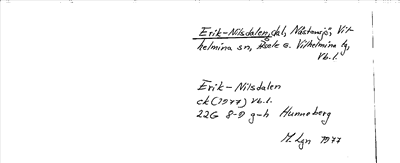 Erik-Nilsdalen, dal, Nästansjö, Vil-
helmina sn, Åsele o. Vilhelmina tg,
Vb. l.
Erik-Nilsdalen
ek (1977) Vb. l.
22G 8-9 g-h Hunneberg
M. Lgn 1977